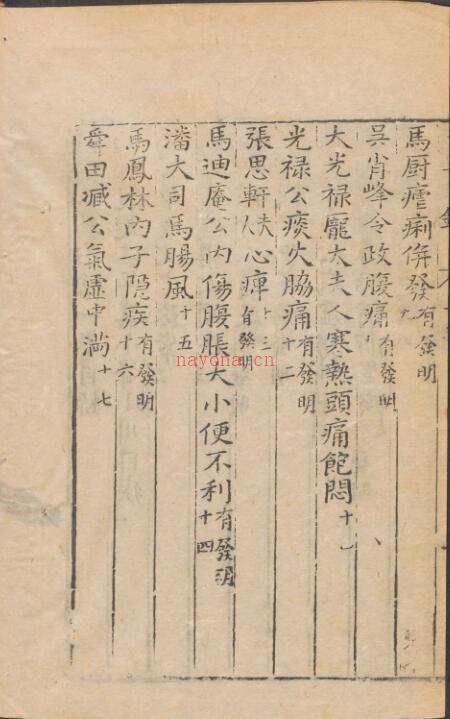 馬厨瘧痢併發有發明九
吳肖峰令政腹痛有發明十
大光禄龐太夫人寒熱頭痛飽悶十一
光禄公痰火脇痛有發明十二
張思軒夫人心痺有發明十三
馬迪庵公內傷腹脹大小便不利有發明十四
潘大司馬腸風十五
馬鳳林內子隱疾有發明十六
舜田臧公氣虛中滿十七
nayona.cn